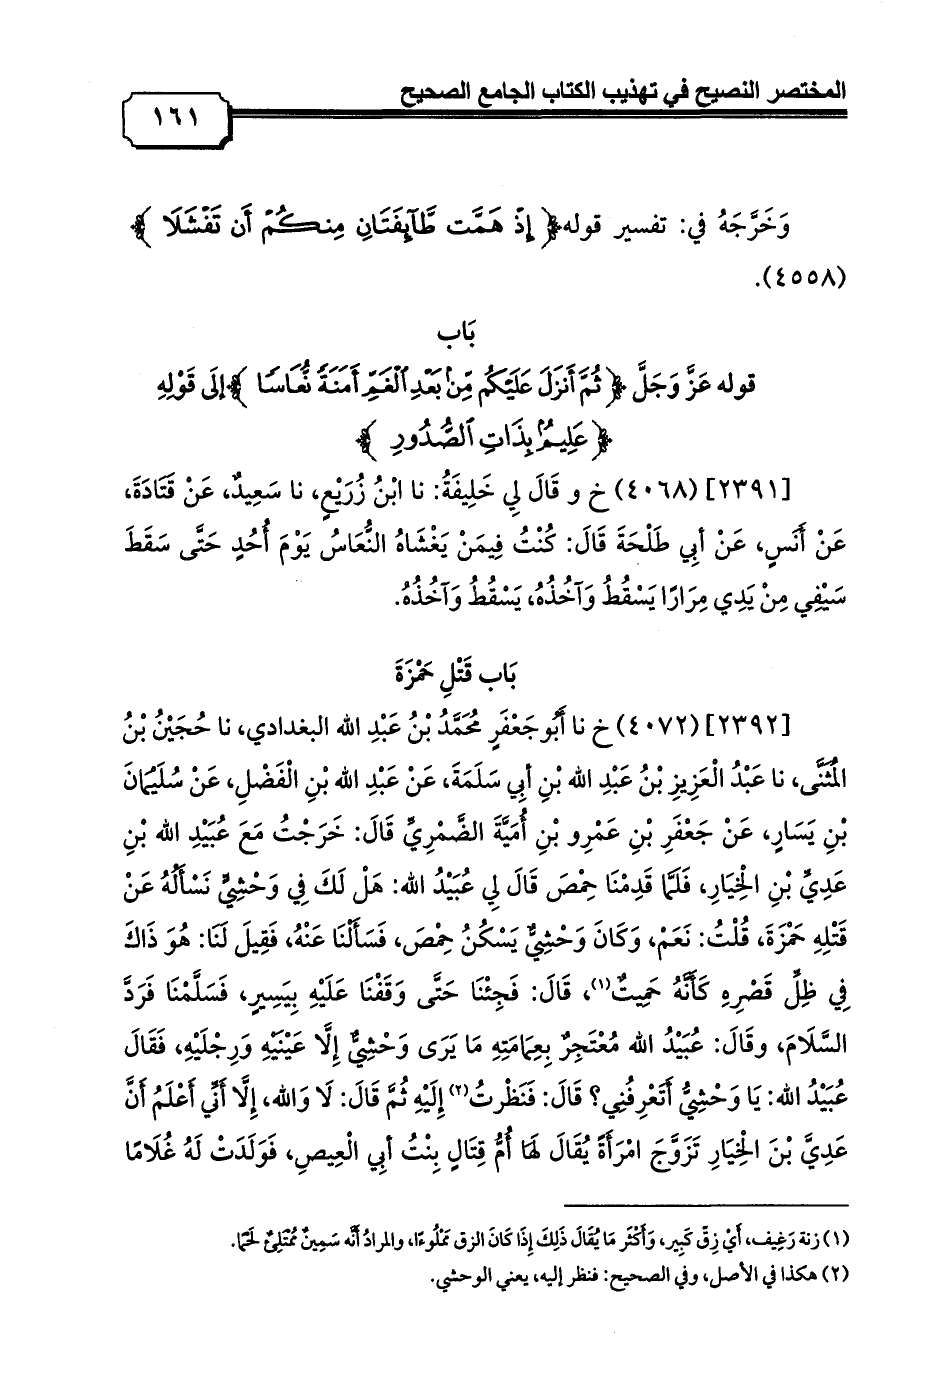 المختصر النصيح في تهذيب الكتاب الجامع الصحيح
١٦١
وَخَرَّجَهُ في: تفسير قوله ﴿ إِذْ هَمَّت طَّآئِفَتَانِ مِنكُمْ أَن تَفْشَلَا ﴾
(٤٥٥٨).
بَاب
قوله عَزَّ وَجَلَّ ﴿ ثُمَّ أَنزَلَ عَلَيْكُم مِّنۢ بَعْدِ ٱلْغَمِّ أَمَنَةً نُّعَاسًا ﴾ إلَى قَوْلِهِ
﴿ عَلِيمٌۢ بِذَاتِ ٱلصُّدُورِ ﴾
[٢٣٩١] (٤٠٦٨) خ و قَالَ لِي خَلِيفَةُ: نا ابْنُ زُرَيْعٍ، نا سَعِيدٌ، عَنْ قَتَادَةَ،
عَنْ أَنَسٍ، عَنْ أبِي طَلْحَةَ قَالَ: كُنْتُ فِيمَنْ يَغْشَاهُ النُّعَاسُ يَوْمَ أُحُدٍ حَتَّى سَقَطَ
سَيْفِي مِنْ يَدِي مِرَارًا يَسْقُطُ وَآخُذُهُ، يَسْقُطُ وَآخُذُهُ.
بَاب قَتْلِ حَمْزَةَ
[٢٣٩٢] (٤٠٧٢) خ نا أَبُو جَعْفَرٍ مُحَمَّدُ بْنُ عَبْدِ الله البغدادي، نا حُجَيْنُ بْنُ
الْمُثَنَّى، نا عَبْدُ الْعَزِيزِ بْنُ عَبْدِ الله بْنِ أبِي سَلَمَةَ، عَنْ عَبْدِ الله بْنِ الْفَضْلِ، عَنْ سُلَيْمَانَ
بْنِ يَسَارٍ، عَنْ جَعْفَرِ بْنِ عَمْرِو بْنِ أُمَيَّةَ الضَّمْرِيِّ قَالَ: خَرَجْتُ مَعَ عُبَيْدِ الله بْنِ
عَدِيِّ بْنِ الْخِيَارِ، فَلَمَّا قَدِمْنَا حِمْصَ قَالَ لِي عُبَيْدُ الله: هَلْ لَكَ فِي وَحْشِيٍّ نَسْأَلُهُ عَنْ
قَتْلِهِ حَمْزَةَ، قُلْتُ: نَعَمْ، وَكَانَ وَحْشِيٌّ يَسْكُنُ حِمْصَ، فَسَأَلْنَا عَنْهُ، فَقِيلَ لَنَا: هُوَ ذَاكَ
فِي ظِلِّ قَصْرِهِ كَأَنَّهُ حَمِيتٌ(١)، قَالَ: فَجِئْنَا حَتَّى وَقَفْنَا عَلَيْهِ بِيَسِيرٍ، فَسَلَّمْنَا فَرَدَّ
السَّلَامَ، وقَالَ: عُبَيْدُ الله مُعْتَجِرٌ بِعِمَامَتِهِ مَا يَرَى وَحْشِيٌّ إِلَّا عَيْنَيْهِ وَرِجْلَيْهِ، فَقَالَ
عُبَيْدُ الله: يَا وَحْشِيُّ أَتَعْرِفُنِي؟ قَالَ: فَنَظَرْتُ(٢) إِلَيْهِ ثُمَّ قَالَ: لَا وَالله، إِلَّا أَنِّي أَعْلَمُ أَنَّ
عَدِيَّ بْنَ الْخِيَارِ تَزَوَّجَ امْرَأَةً يُقَالُ لَهَا أُمُّ قِتَالٍ بِنْتُ أبِي الْعِيصِ، فَوَلَدَتْ لَهُ غُلَامًا
(١) زنة رَغِيف، أَيْ زِقّ كَبِير، وَأَكْثَر مَا يُقَالُ ذَلِكَ إِذَا كَانَ الزق مَمْلُوءًا، والمرادُ أنَّه سَمِينٌ مُمْتَلِئٌ لَحْمًا.
(٢) هكذا في الأصل، وفي الصحيح: فنظر إليه، يعني الوحشي.